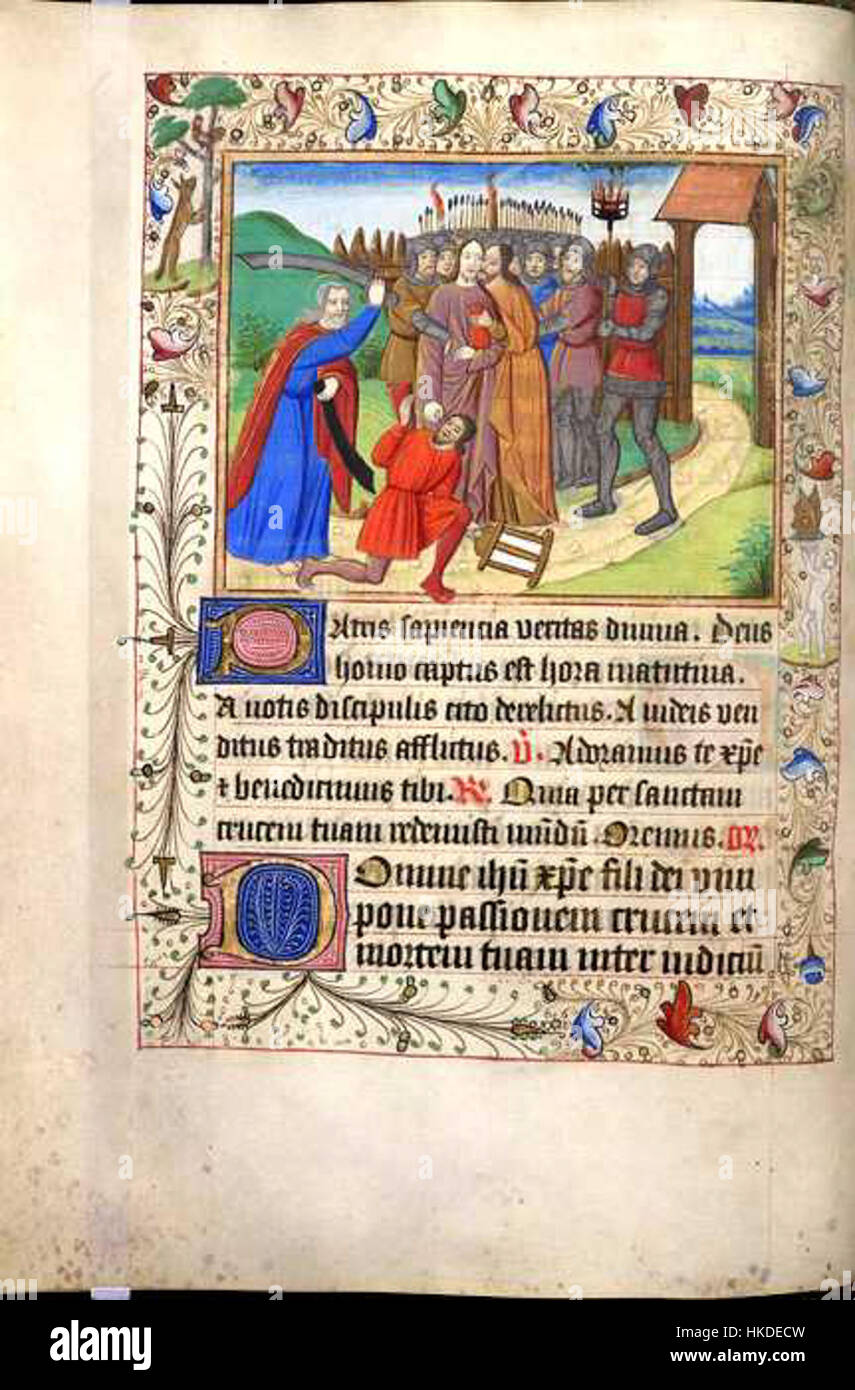 Patris sapiencia veritas divina. Deus
homo captus est hora matutina.
A notis discipulis cito derelictus. A iudeis ven
ditus traditus afflictus. V̄. Adoramus te xp̄e
⁊ benedicimus tibi. R̄. Quia per sanctam
crucem tuam redemisti mūdū. Oremus. or̄.
Domine ihū xp̄e fili dei vivi
pone passionem crucem et
mortem tuam inter iudiciū
alamy
Image ID: HKDECW
www.alamy.com